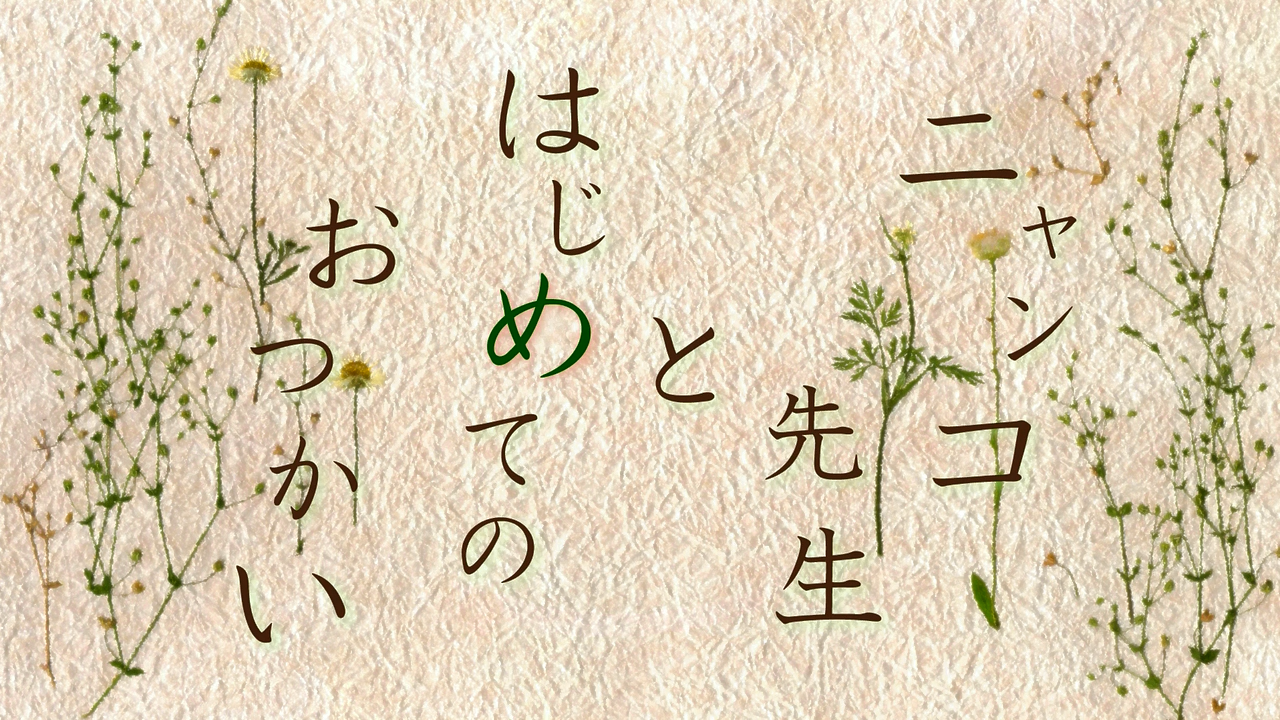 ニャンコ
先生
と
はじめての
おつかい